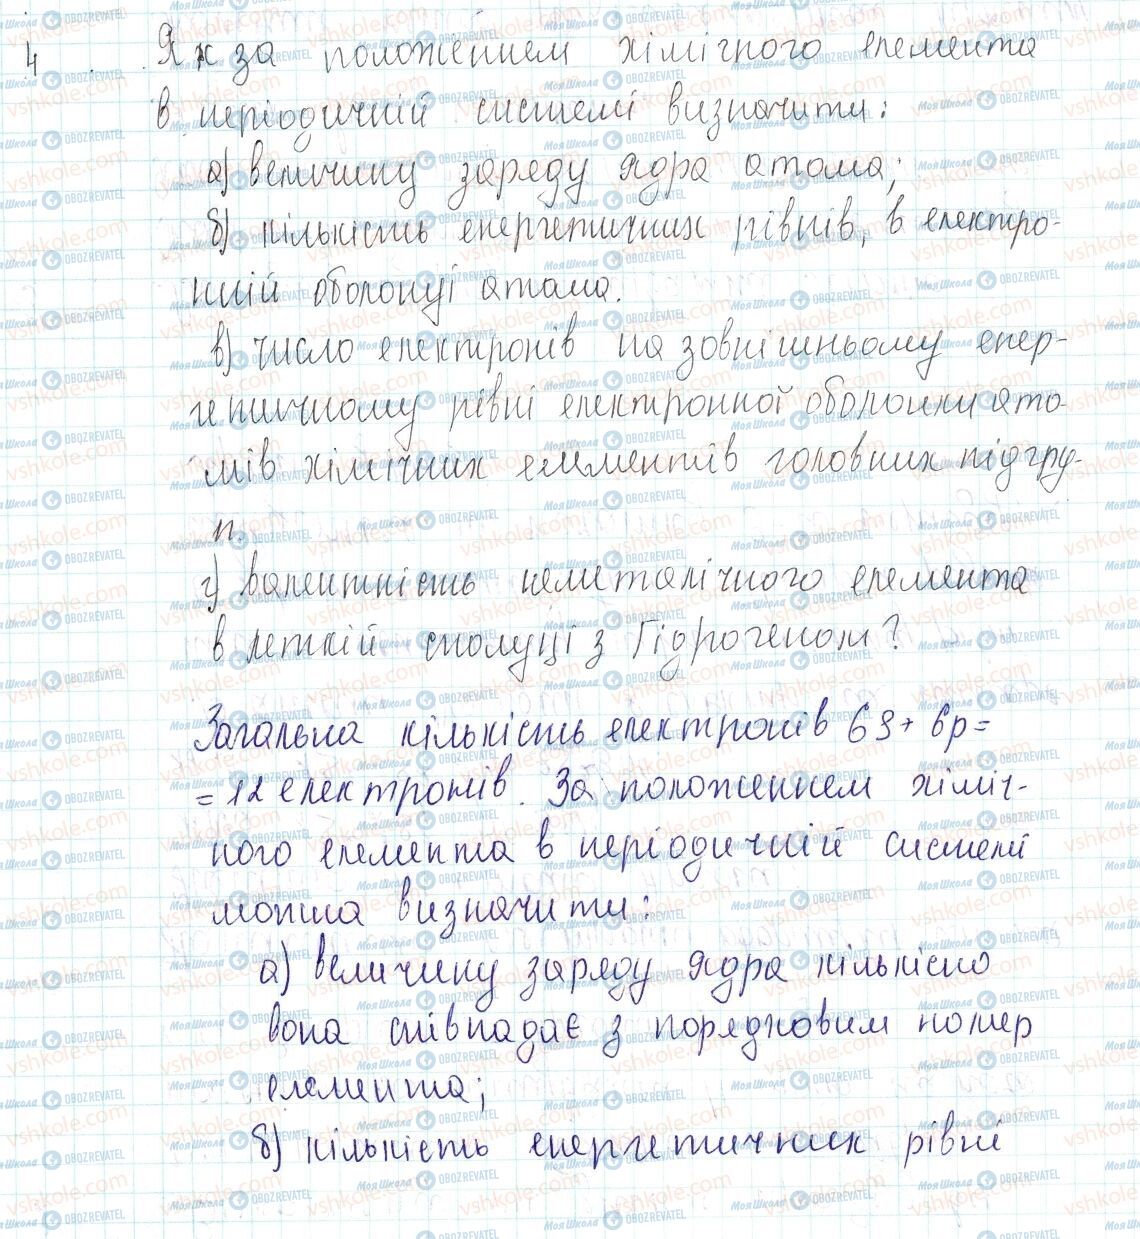 4 Як за положенням хімічного елемента
в періодичній системі визначити:
а) величину заряду ядра атома;
б) кількість енергетичних рівнів, в електро-
нній оболонці атома.
в) число електронів на зовнішньому енер-
гетичному рівні електронної оболонки ато-
мів хімічних елементів головних підгру-
п.
г) валентність неметалічного елемента
в леткій сполуці з Гідрогеном?
Загальна кількість електронів 6s + 6p =
= 12 електронів. За положенням хіміч-
ного елемента в періодичній системі
можна визначити:
а) величину заряду ядра кількісно
вона співпадає з порядковим номер
елемента;
б) кількість енергетичних рівні